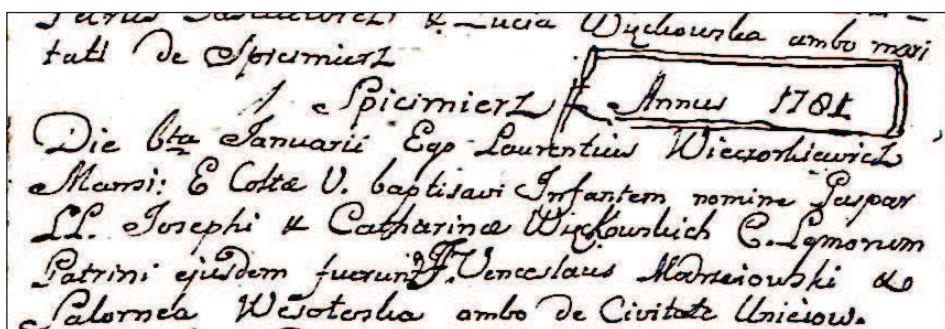 Petrus Jaskiewicz & Lucia Więckowska ambo mari
tati de Spicimierz
Spicimierz Annus 1781
Die 6ta Januarii Ego Laurentius Wieczorkiewicz
Mansi: E Coltæ U. baptisavi Infantem nomine Gaspar
LL. Josephi & Catharinæ Więkowskich C. Lgmorum
Patrini ejusdem fuerunt Venceslaus &
Salomea ambo de Civitate Uniéiow.